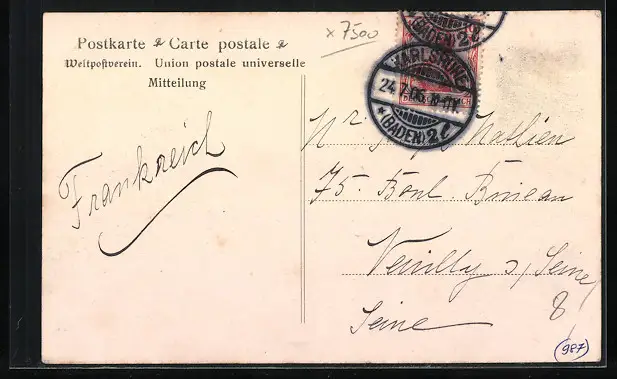 x 7500
Postkarte * Carte postale *
Weltpostverein. Union postale universelle
Mitteilung
(BADEN) 2 l
KARLSRUHE
24.7.05.
* (BADEN) 2 l
Frankreich
Mathieu
75. Boul. Bineau
Neuilly s/Seine
Seine
8
987